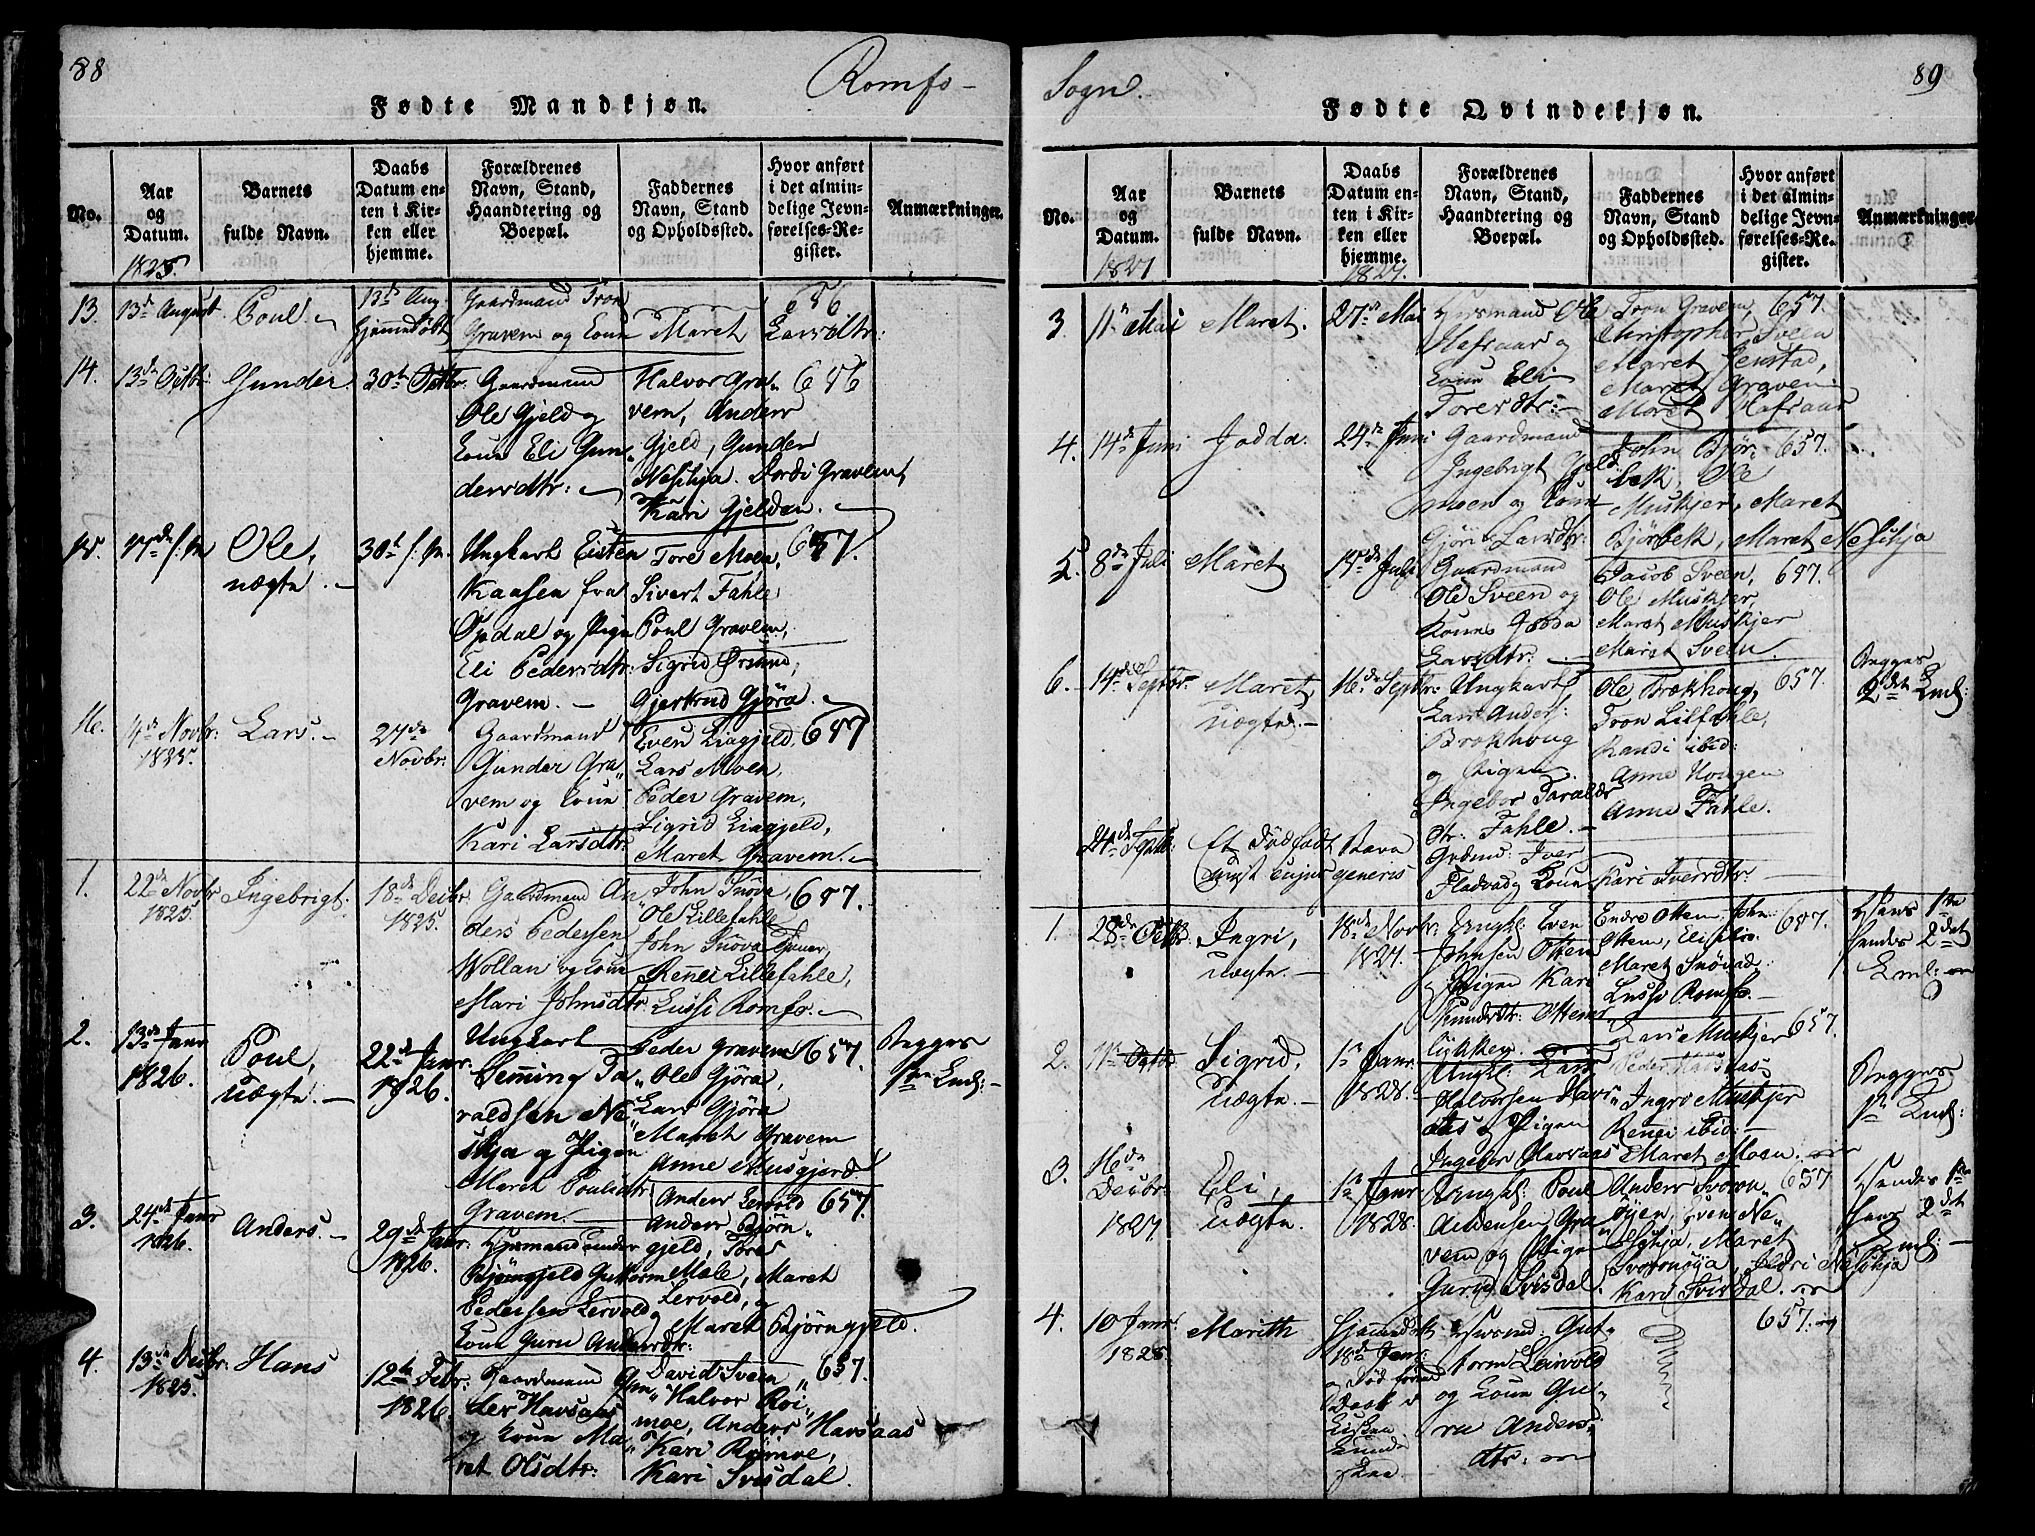 88
Romfo-
Fødte Mandkjøn.
No.
Aar
og
Datum.
Barnets
fulde Navn.
Daabs
Datum en-
ten i Kir-
ken eller
hjemme.
Forældrenes
Navn, Stand,
Haandtering og
Boepæl.
Faddernes
Navn, Stand
og Opholdssted.
Hvor anført
i det almin-
delige Jevn-
førelses-Re-
gister.
Anmærkninger.
1825
13.
13de August
Poul.
13de Aug
Hjemmedøbt
Gaardmand Tron
Gravem og Kone Maret Larsdtr:
14.
13de Octbr:
Gunder
30te Octbr.
Gaardmand
Ole Gjeld og
Kone Eli Gun-
dersdtr:
Halvor Gra-
vem, Anders
Gjeld, Gunder
Nesihja. Dordi Gravem,
Kari Gjeldan.
15.
Ole,
uægte.
Ungkarl Eisten
Kaasen fra
Opdal og Pige
Eli Pedersdtr:
Gravem.
Tore Moen,
Sivert Fahle
Poul Gravem,
Sigrid Ørsund,
Gjertrud Gjöra.
16.
4de Novbr:
1825.
Lars.
27de
Novbr:
Gaardmand
Gunder Gra-
vem og Kone
Kari Larsdtr:
Even Liagjeld,
Lars Moen,
Peder Gravem,
Sigrid Liagjeld,
Maret Gravem.
1.
22de Novbr
1825.
Ingebrigt.
18de Decbr.
1825.
Gaardmand An-
ders Pedersen
Wollan og Kone
Mari Johnsdtr.
John Snöva
Ole Lillefahle
John Snöva
Rennei Lillefahle,
Lussi Romfo.
2.
13de Janr
1826.
Poul,
uægte.
22de Janr.
1826.
Ungkarl
Hemming Ta-
raldsen Ne-
sihja og Pigen
Maret Poulsdtr
Gravem.
Peder Gravem
Ole Gjöra,
Lars Gjöra
Maret Gravem
Anne Musgjerd
657.
Begges
1ste Leil:
3.
24de Janr
1826.
Anders.
29de Janr.
1826.
Huusmand under
Björngjeld Guttorm
Pedersen Lervold og
Kone Guru Andersdtr:
Anders Lervold
Anders Björn-
gjeld, Tore
Male, Maret
Lervold,
Maret Björngjeld.
657.
4.
13de Decbr:
1825.
Hans
12te Febr.
1826.
Gaardmand Gun-
der Havsaas
og Kone Ma-
ret Olsdtr:
David Sveen
Halvor Roi-
moe, Anders Havsaas
Kari Roimoe,
Kari Svisdal.
657.
89
Sogn.
Fødte Qvindekjøn.
No.
Aar
og
Datum.
Barnets
fulde Navn.
Daabs
Datum en-
ten i Kir-
ken eller
hjemme.
Forældrenes
Navn, Stand,
Haandtering og
Boepæl.
Faddernes
Navn, Stand
og Opholdssted.
Hvor anført
i det almin-
delige Jevn-
førelses-Re-
gister.
Anmærkninger
1827
1827.
3.
11te Mai
Maret.
27de Mai
Huusmand Ole
Hafsaas og
Kone Eli
Toresdtr:
Tron Gravem,
Christopher Sveen
Maret Jenstad,
Maret Graven
Maret Hafsaas
657.
4.
14de Juni
Jodda.
24de Juni
Gaardmand
Ingebrigt Gjeld
moen og Kone
Gjöri Larsdtr:
John Björ-
bek, Ole
Muskjer, Maret
Bjørbek, Maret Nesihja
657.
5.
8de Juli
Maret
15de Juli
Gaardmand
Ole Sveen og
Kone Jodda
Larsdtr.
Jacob Sveen,
Ole Muskjer,
Maret Muskjer
Maret Sveen.
657.
6.
14de Septbr.
Maret,
uægte.
16de Septbr.
Ungkarl
Lars Anders:
Brækhoug
og Pigen
Ingebor Taralds-
dtr. Fahle.
Ole Brækhoug,
Tron Lilfahle,
Randi ibid:
Anne Hougen
Anne Fahle.
657.
Begges
2det Leil:
24de Septbr
Et Dödfödt Barn
generis
Iver
Fladvad og Kone Kari Iversdtr.
1.
28de Octbr
Ingri,
uægte.
18de Novbr.
1827.
Ungkl: Even
Johnsen Ottem
og Pigen Kari
Knudsdtr: Ottems
lykken.
Endre Ottem, John
Ottem, Eli ibid:
Maret Snövad
Lussi Romfo.
657.
Hans 1ste
hendes 2det
Leil:
2.
Sigrid,
uægte.
1ste Janr.
1828.
Ungkl: Lars
Halvorsen Havs-
aas og Pigen
Ingebor Havsaas
Lars Muskjer
Peder Havsaas
Ingri Muskjer
Rennei ibid:
Maret Moen.
657.
Begges
1ste Leil:
3.
16de
Decbr.
1827.
Eli,
uægte.
1ste Janr
1828.
Ungkl: Poul
Gra-
vem og Pigen
Guru Svisdal.
Anders Svoren-
öyen, Even Ne-
sihja, Maret
Svorenöya, Nesihja
Kari Svisdal.
657
Hendes 1ste
hans 2det
Leil:
4.
10 Janr.
1828.
Marith
Hjemmedöbt
18de Janr:
Huusmd: Gut-
torm Leirvold
og Kone Gu-
ru Anders-
dtr.
657.